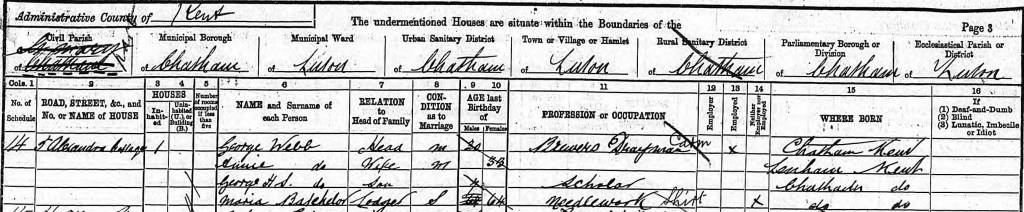 Administrative County of Kent
The undermentioned Houses are situate within the Boundaries of the
Page 3
Civil Parish
of Chatham
Municipal Borough
of Chatham
Municipal Ward
of Luton
Urban Sanitary District
of Chatham
Town or Village or Hamlet
of Luton
Rural Sanitary District
of Chatham
Parliamentary Borough or Division
of Chatham
Ecclesiastical Parish or District
of Luton
Cols. 1 2 3 4 5 6 7 8 9 10 11 12 13 14 15 16
No. of Schedule
ROAD, STREET, &c., and No. or NAME of HOUSE
HOUSES
In-habited
Unin-habited (U.) or Building (B.)
Number of rooms occupied if less than five
NAME and Surname of each Person
RELATION to Head of Family
CON-DITION as to Marriage
AGE last Birthday of
Males
Females
PROFESSION or OCCUPATION
Employer
Employed
Neither Employer nor Employed
WHERE BORN
If
(1) Deaf-and-Dumb
(2) Blind
(3) Lunatic, Imbecile or Idiot
14 Alexandra 1 George Webb Head M 30 Brewers Drayman X Chatham Kent
Annie do Wife M 32 Lenham Kent
George H. S. do Son Scholar Chatham do
Maria Batchelor Lodger S 64 Needlework Shirt X do do